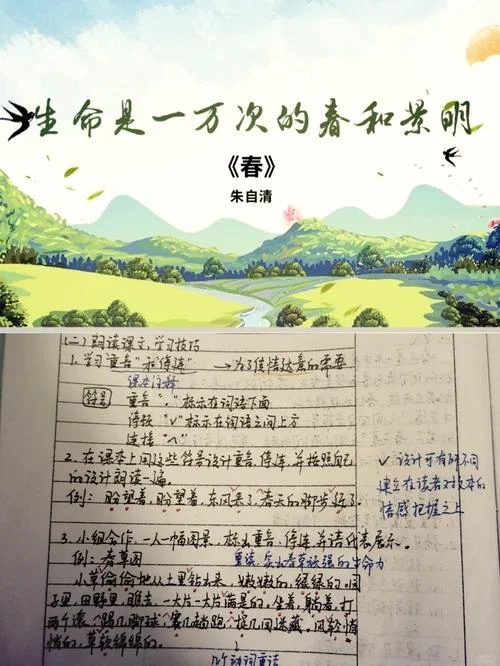 生命是一万次的春和景明
《春》
朱自清
(二) 朗读课文,学习技巧
1. 学习"重音"和"停连" →为了传情达意的需要
课本注释
符号 重音 "." 标示在词语下面
停顿 "∨" 标示在词语之间上方
连接 "^"
2. 在课本上用这些符号设计重音、停连,并按照自己
的设计朗读一遍。
✓ 设计可有所不同
建立在读者对文本的
情感把握之上
例: 盼望着,盼望着,东风来了,春天的脚步近了。
3. 小组合作,一人一幅图景,标出重音、停连,并请代表展示。
例: 春草图 重读,突出春草顽强的生命力
小草偷偷地从土里钻出来,嫩嫩的,绿绿的。园
子里,田野里,瞧去,一大片一大片满是的。坐着,躺着,打
两个滚,踢几脚球,赛几趟跑,捉几回迷藏。风轻悄
悄的,草软绵绵的。
几个动词重读